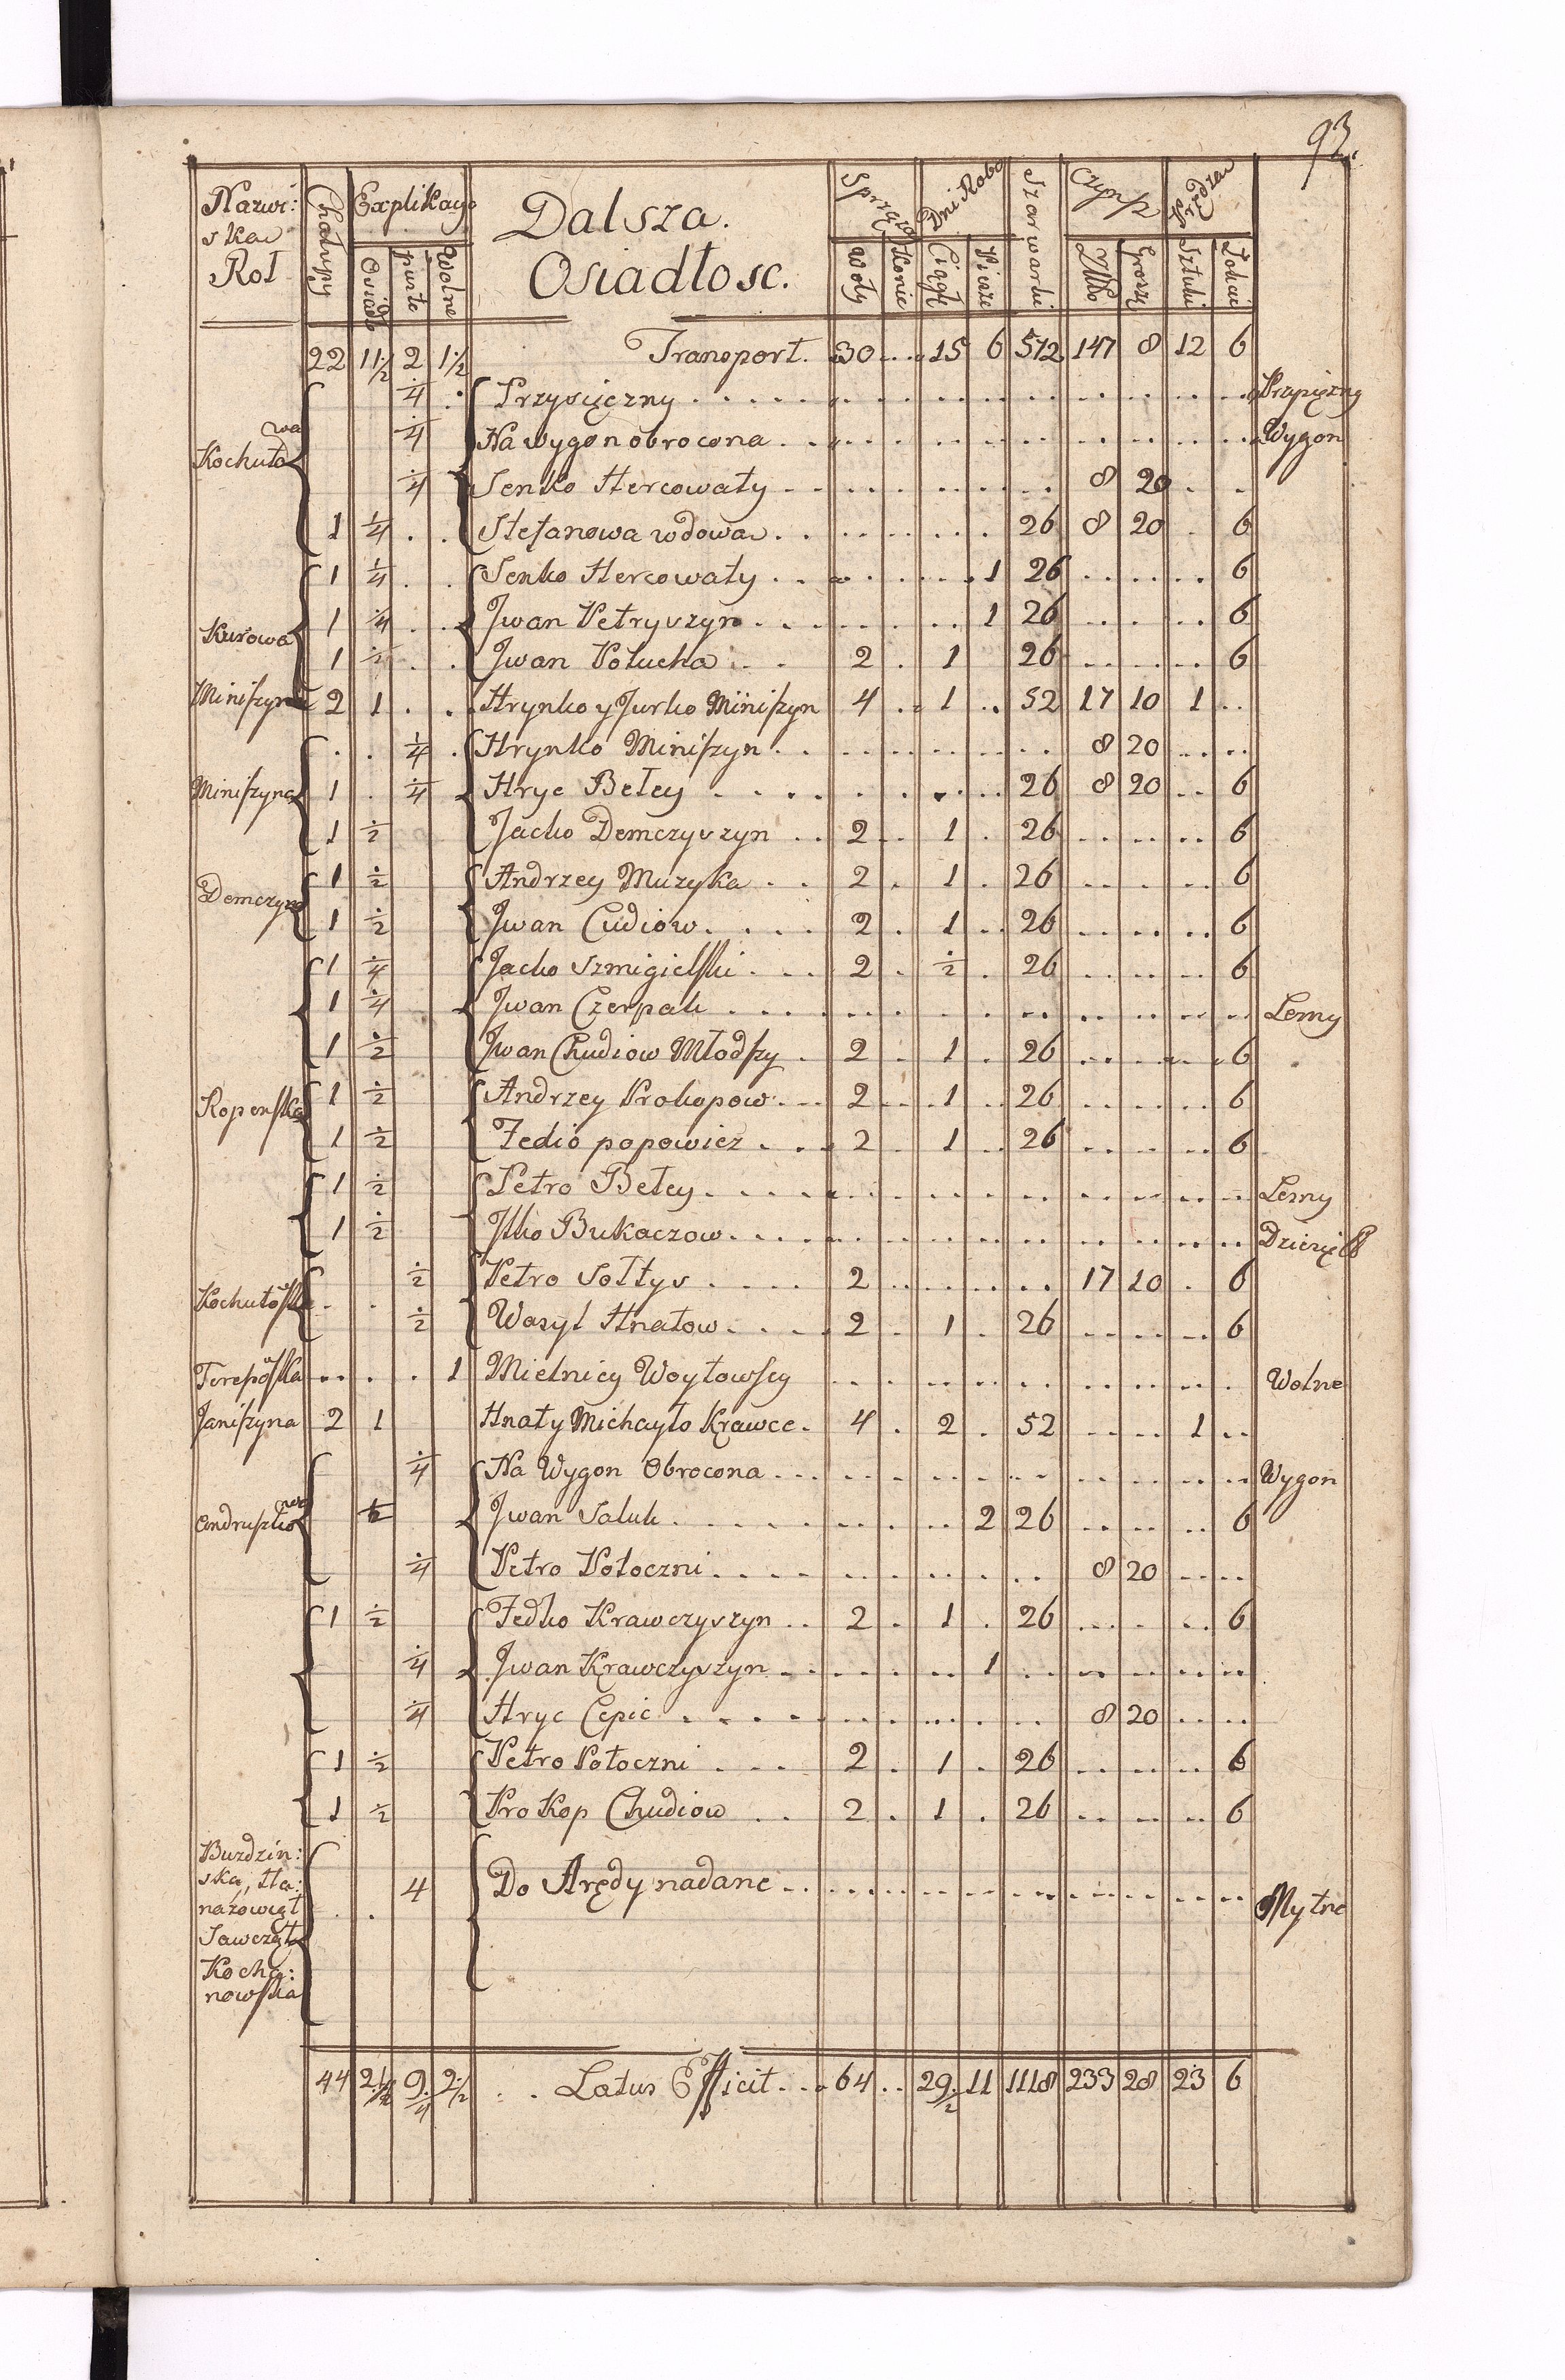 93.
Nazwi: Chałupy Explikacya Dalsza. Sprzęża Dni Robo Szarwarki Czynsz Przędza
ska
Rol Osiadłe puste Wolne Osiadłosc. Woły Konie Ciągłe Piesze Złło Groszy Sztuki Łokcie
22 11½ 2 1½ Transport. 30 . . . 15 6 572 147 8 12 6
¼ Przysięczny Przysięzny
Kochuto wa ¼ Na wygon obrocona Wygon
¼ Senko Hercowaty 8 20
1 ¼ Stefanowa wdowa 26 8 20 6
1 ¼ Senko Hercowaty 1 26 6
Kurowa 1 ¼ Jwan Petryszyn 1 26 6
1 ½ Jwan Potucha 2 1 26 6
Miniszyna 2 1 Hrynko y Jurko Miniszyn 4 1 52 17 10 1
¼ Hrynko Miniszyn 8 20
Miniszyna 1 ¼ Hryc Bełey 26 8 20 6
1 ½ Jacko Demczyszyn 2 1 26 6
Demczyna 1 ½ Andrzey Muzyka 2 1 26 6
1 ½ Jwan Cudiow 2 1 26 6
1 ¼ Jacko Szmigielski 2 ½ 26 6
1 ¼ Jwan Czerpak Lemy
1 ½ Jwan Chudiow Młodszy 2 1 26 6
Ropenska 1 ½ Andrzey Prokopow 2 1 26 6
1 ½ Fedio popowicz 2 1 26 6
1 ½ Petro Bełey Lemy
1 ½ Jlko Bukaczow
½ Petro Sołtys 2 17 10 6
Kochutoska ½ Wasyl Hnatow 2 1 26 6
Tereposka 1 Mielnicy Woytowscy Wolne
Janiszyna 2 1 Hnaty Michayło Krawce 4 2 52 1
¼ Na Wygon Obrocona Wygon
Andruszko wa ½ Jwan Saluk 2 26 6
¼ Petro Potoczni 8 20
1 ½ Fedko Krawczyszyn 2 1 26 6
¼ Jwan Krawczyszyn 1
¼ Hryc Cepic 8 20
1 ½ Petro Potoczni 2 1 26 6
1 ½ Prokop Chudiow 2 1 26 6
Burdzin:
ska, Ha: 4 Do Arędy nadane
nazowięt Mytne
Sawczęta
Kocha:
nowska
44 21¼ 9¼ 2½ Latus Efficit 64 29½ 11 1118 233 28 23 6